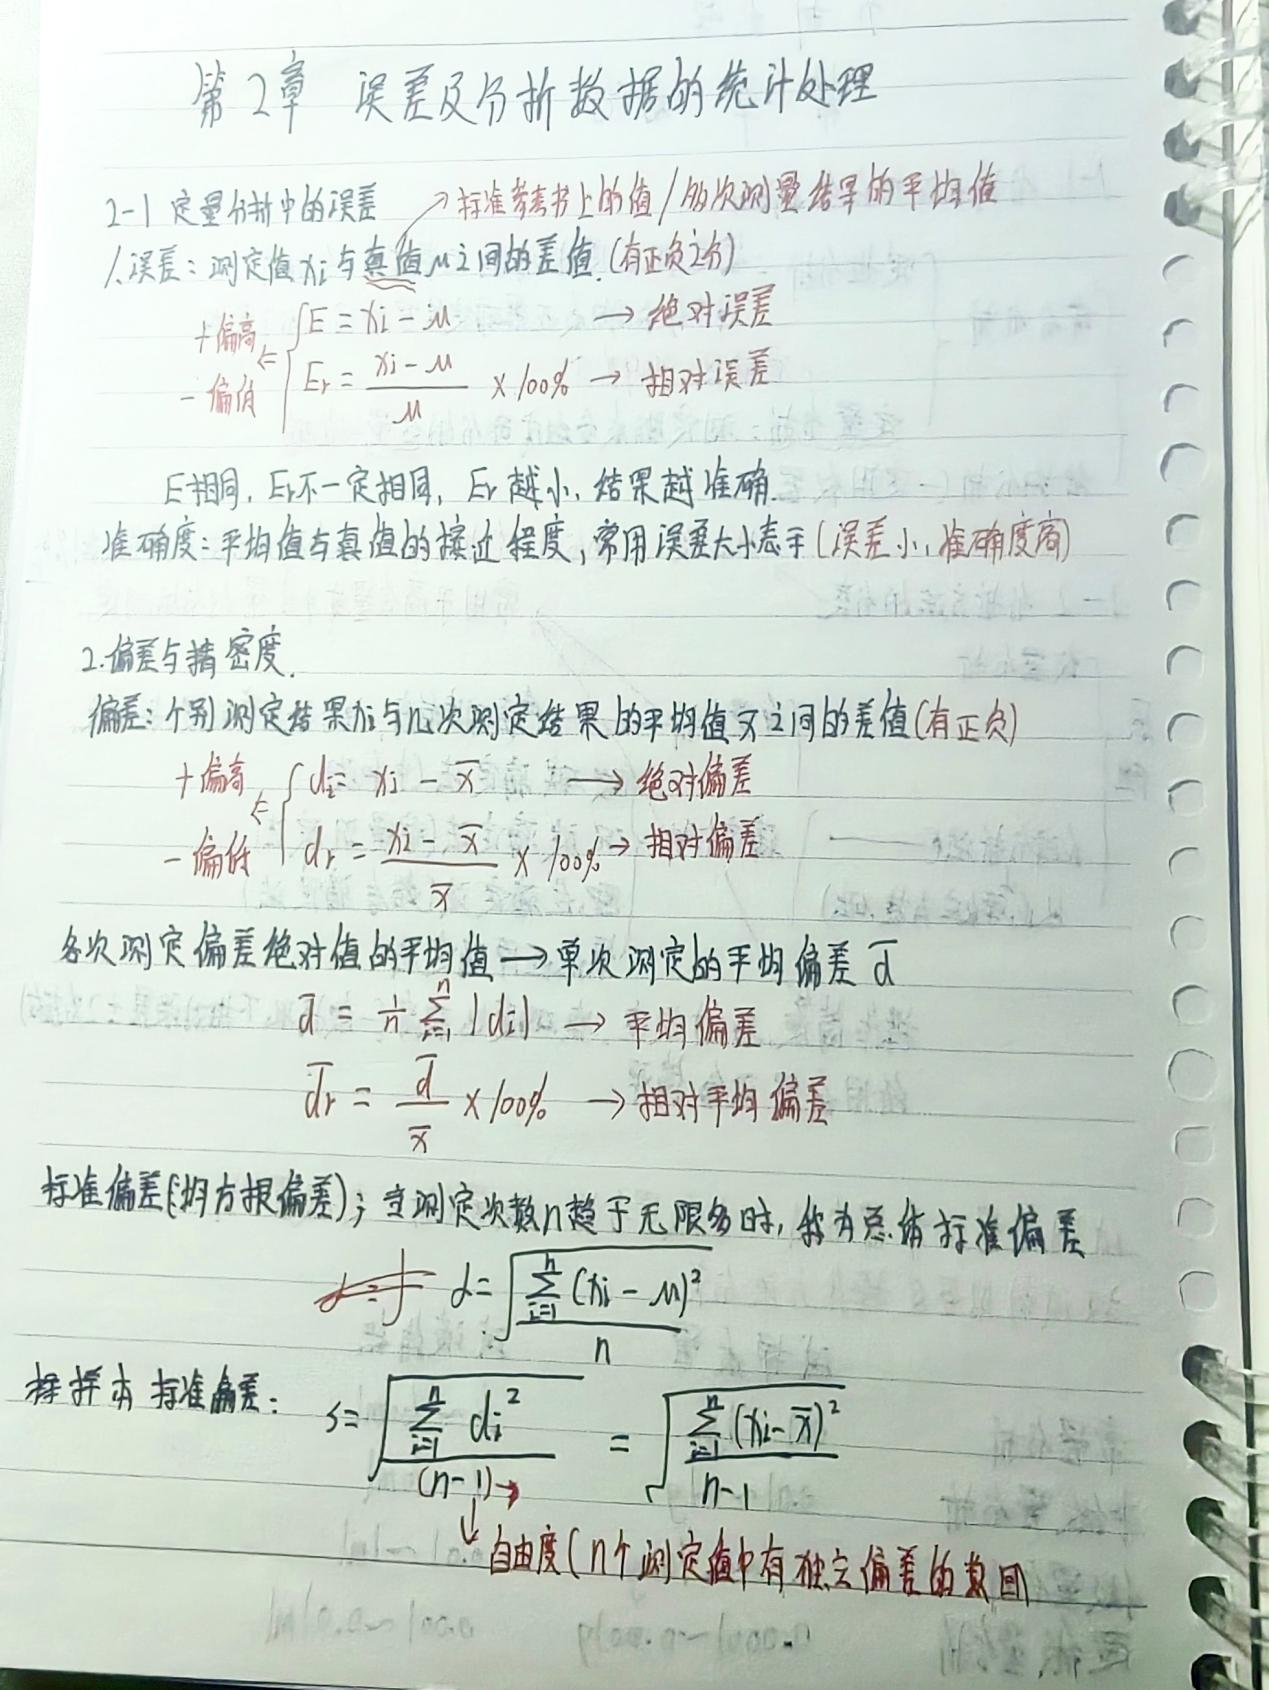 第2章 误差及分析数据的统计处理
2-1 定量分析中的误差 → 标准参考书上的值/多次测量结果的平均值
1.误差：测定值xi与真值μ之间的差值.(有正负之分)
+偏高 E = xi - μ → 绝对误差
-偏低 ⇐ Er = (xi - μ)/μ × 100% → 相对误差
E相同, Er不一定相同, Er越小, 结果越准确.
准确度：平均值与真值的接近程度, 常用误差大小表示(误差小, 准确度高)
2.偏差与精密度.
偏差：个别测定结果xi与几次测定结果的平均值x̄之间的差值(有正负)
+偏高 di = xi - x̄ → 绝对偏差
-偏低 ⇐ dr = (xi - x̄)/x̄ × 100% → 相对偏差
各次测定偏差绝对值的平均值 → 单次测定的平均偏差 d̄
d̄ = 1/n ∑(i=1→n) |di| → 平均偏差
d̄r = d̄/x̄ × 100% → 相对平均偏差
标准偏差(均方根偏差)；当测定次数n趋于无限多时, 称为总体标准偏差
σ = √(∑(i=1→n) (xi - μ)²/n)
样本标准偏差： s = √(∑(i=1→n) di²/(n-1)) = √(∑(i=1→n) (xi - x̄)²/n-1)
→ 自由度(n个测定值中有独立偏差的数目